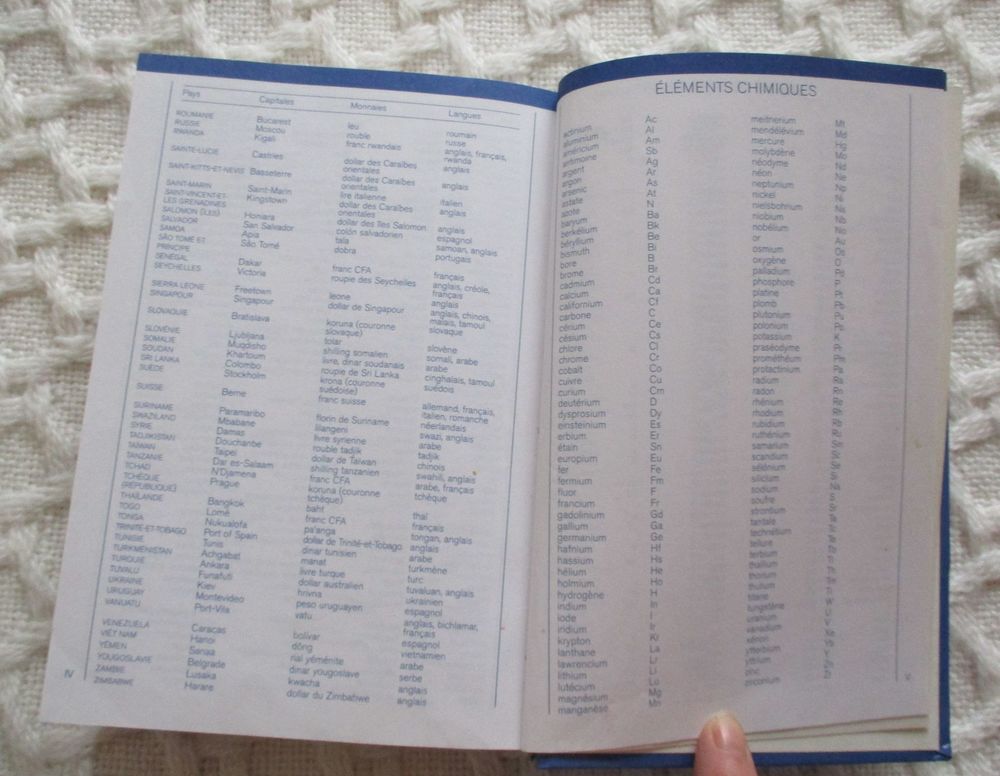 Pays Capitales Monnaies Langues
ROUMANIE Bucarest leu roumain
RUSSIE Moscou rouble russe
RWANDA Kigali franc rwandais anglais, français, rwanda
SAINTE-LUCIE Castries dollar des Caraïbes orientales anglais
SAINT-KITTS-ET-NEVIS Basseterre dollar des Caraïbes orientales anglais
SAINT-MARIN Saint-Marin lire italienne italien
SAINT-VINCENT-ET-LES GRENADINES Kingstown dollar des Caraïbes orientales anglais
SALOMON (ÎLES) Honiara dollar des îles Salomon anglais
SALVADOR San Salvador colón salvadorien espagnol
SAMOA Apia tala samoan, anglais
SÃO TOMÉ ET PRINCIPE São Tomé dobra portugais
SÉNÉGAL Dakar franc CFA français
SEYCHELLES Victoria roupie des Seychelles anglais, créole, français
SIERRA LEONE Freetown leone anglais
SINGAPOUR Singapour dollar de Singapour anglais, chinois, malais, tamoul
SLOVAQUIE Bratislava koruna (couronne slovaque) slovaque
SLOVÉNIE Ljubljana tolar slovène
SOMALIE Muqdisho shilling somalien somali, arabe
SOUDAN Khartoum livre, dinar soudanais arabe
SRI LANKA Colombo roupie de Sri Lanka cinghalais, tamoul
SUÈDE Stockholm krona (couronne suédoise) suédois
SUISSE Berne franc suisse allemand, français, italien, romanche
SURINAME Paramaribo florin de Suriname néerlandais
SWAZILAND Mbabane lilangeni swazi, anglais
SYRIE Damas livre syrienne arabe
TADJIKISTAN Douchanbe rouble tadjik tadjik
TAIWAN Taipei dollar de Taiwan chinois
TANZANIE Dar es-Salaam shilling tanzanien swahili, anglais
TCHAD N'Djamena franc CFA arabe, français
TCHÈQUE (RÉPUBLIQUE) Prague koruna (couronne tchèque) tchèque
THAÏLANDE Bangkok baht thaï
TOGO Lomé franc CFA français
TONGA Nukualofa pa'anga tongan, anglais
TRINITÉ-ET-TOBAGO Port of Spain dollar de Trinité-et-Tobago anglais
TUNISIE Tunis dinar tunisien arabe
TURKMÉNISTAN Achgabat manat turkmène
TURQUIE Ankara livre turque turc
TUVALU Funafuti dollar australien tuvaluan, anglais
UKRAINE Kiev hrivna ukrainien
URUGUAY Montevideo peso uruguayen espagnol
VANUATU Port-Vila vatu anglais, bichlamar, français
VENEZUELA Caracas bolívar espagnol
VIÊT NAM Hanoi dông vietnamien
YÉMEN Sanaa rial yéménite arabe
YOUGOSLAVIE Belgrade dinar yougoslave serbe
ZAMBIE Lusaka kwacha anglais
ZIMBABWE Harare dollar du Zimbabwe anglais
IV
ÉLÉMENTS CHIMIQUES
actinium Ac
aluminium Al
américium Am
antimoine Sb
argent Ag
argon Ar
arsenic As
astate At
azote N
baryum Ba
berkélium Bk
béryllium Be
bismuth Bi
bore B
brome Br
cadmium Cd
calcium Ca
californium Cf
carbone C
cérium Ce
césium Cs
chlore Cl
chrome Cr
cobalt Co
cuivre Cu
curium Cm
deutérium D
dysprosium Dy
einsteinium Es
erbium Er
étain Sn
europium Eu
fer Fe
fermium Fm
fluor F
francium Fr
gadolinium Gd
gallium Ga
germanium Ge
hafnium Hf
hassium Hs
hélium He
holmium Ho
hydrogène H
indium In
iode I
iridium Ir
krypton Kr
lanthane La
lawrencium Lr
lithium Li
lutécium Lu
magnésium Mg
manganèse Mn
meitnerium Mt
mendélévium Md
mercure Hg
molybdène Mo
néodyme Nd
néon Ne
neptunium Np
nickel Ni
nielsbohrium Ns
niobium Nb
nobélium No
or Au
osmium Os
oxygène O
palladium Pd
phosphore P
platine Pt
plomb Pb
plutonium Pu
polonium Po
potassium K
praséodyme Pr
prométhéum Pm
protactinium Pa
radium Ra
radon Rn
rhénium Re
rhodium Rh
rubidium Rb
ruthénium Ru
samarium Sm
scandium Sc
sélénium Se
silicium Si
sodium Na
soufre S
strontium Sr
tantale Ta
technétium Tc
tellure Te
terbium Tb
thallium Tl
thorium Th
thulium Tm
titane Ti
tungstène W
uranium U
vanadium V
xénon Xe
ytterbium Yb
yttrium Y
zinc Zn
zirconium Zr
V